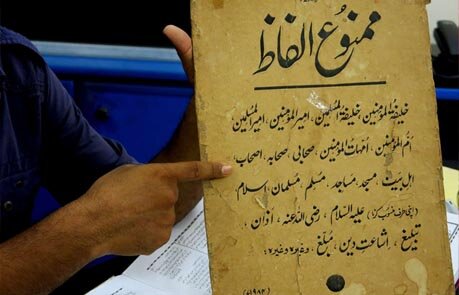 ممنوع الفاظ
خلیفۃ المؤمنین، خلیفۃ المسلمین، امیر المؤمنین، امیر المسلمین
ام المؤمنین، امہات المؤمنین، صحابی، صحابہ، اصحاب،
اہل بیت، مسجد، مساجد، مسلم، مسلمان، اسلام
(اپنی طرف منسوب کرنا) علیہ السلام، رضی اللہ عنہ، اذان،
تبلیغ، اشاعت دین، مبلغ، وغیرہ وغیرہ،
(۱۹۸۴ء)